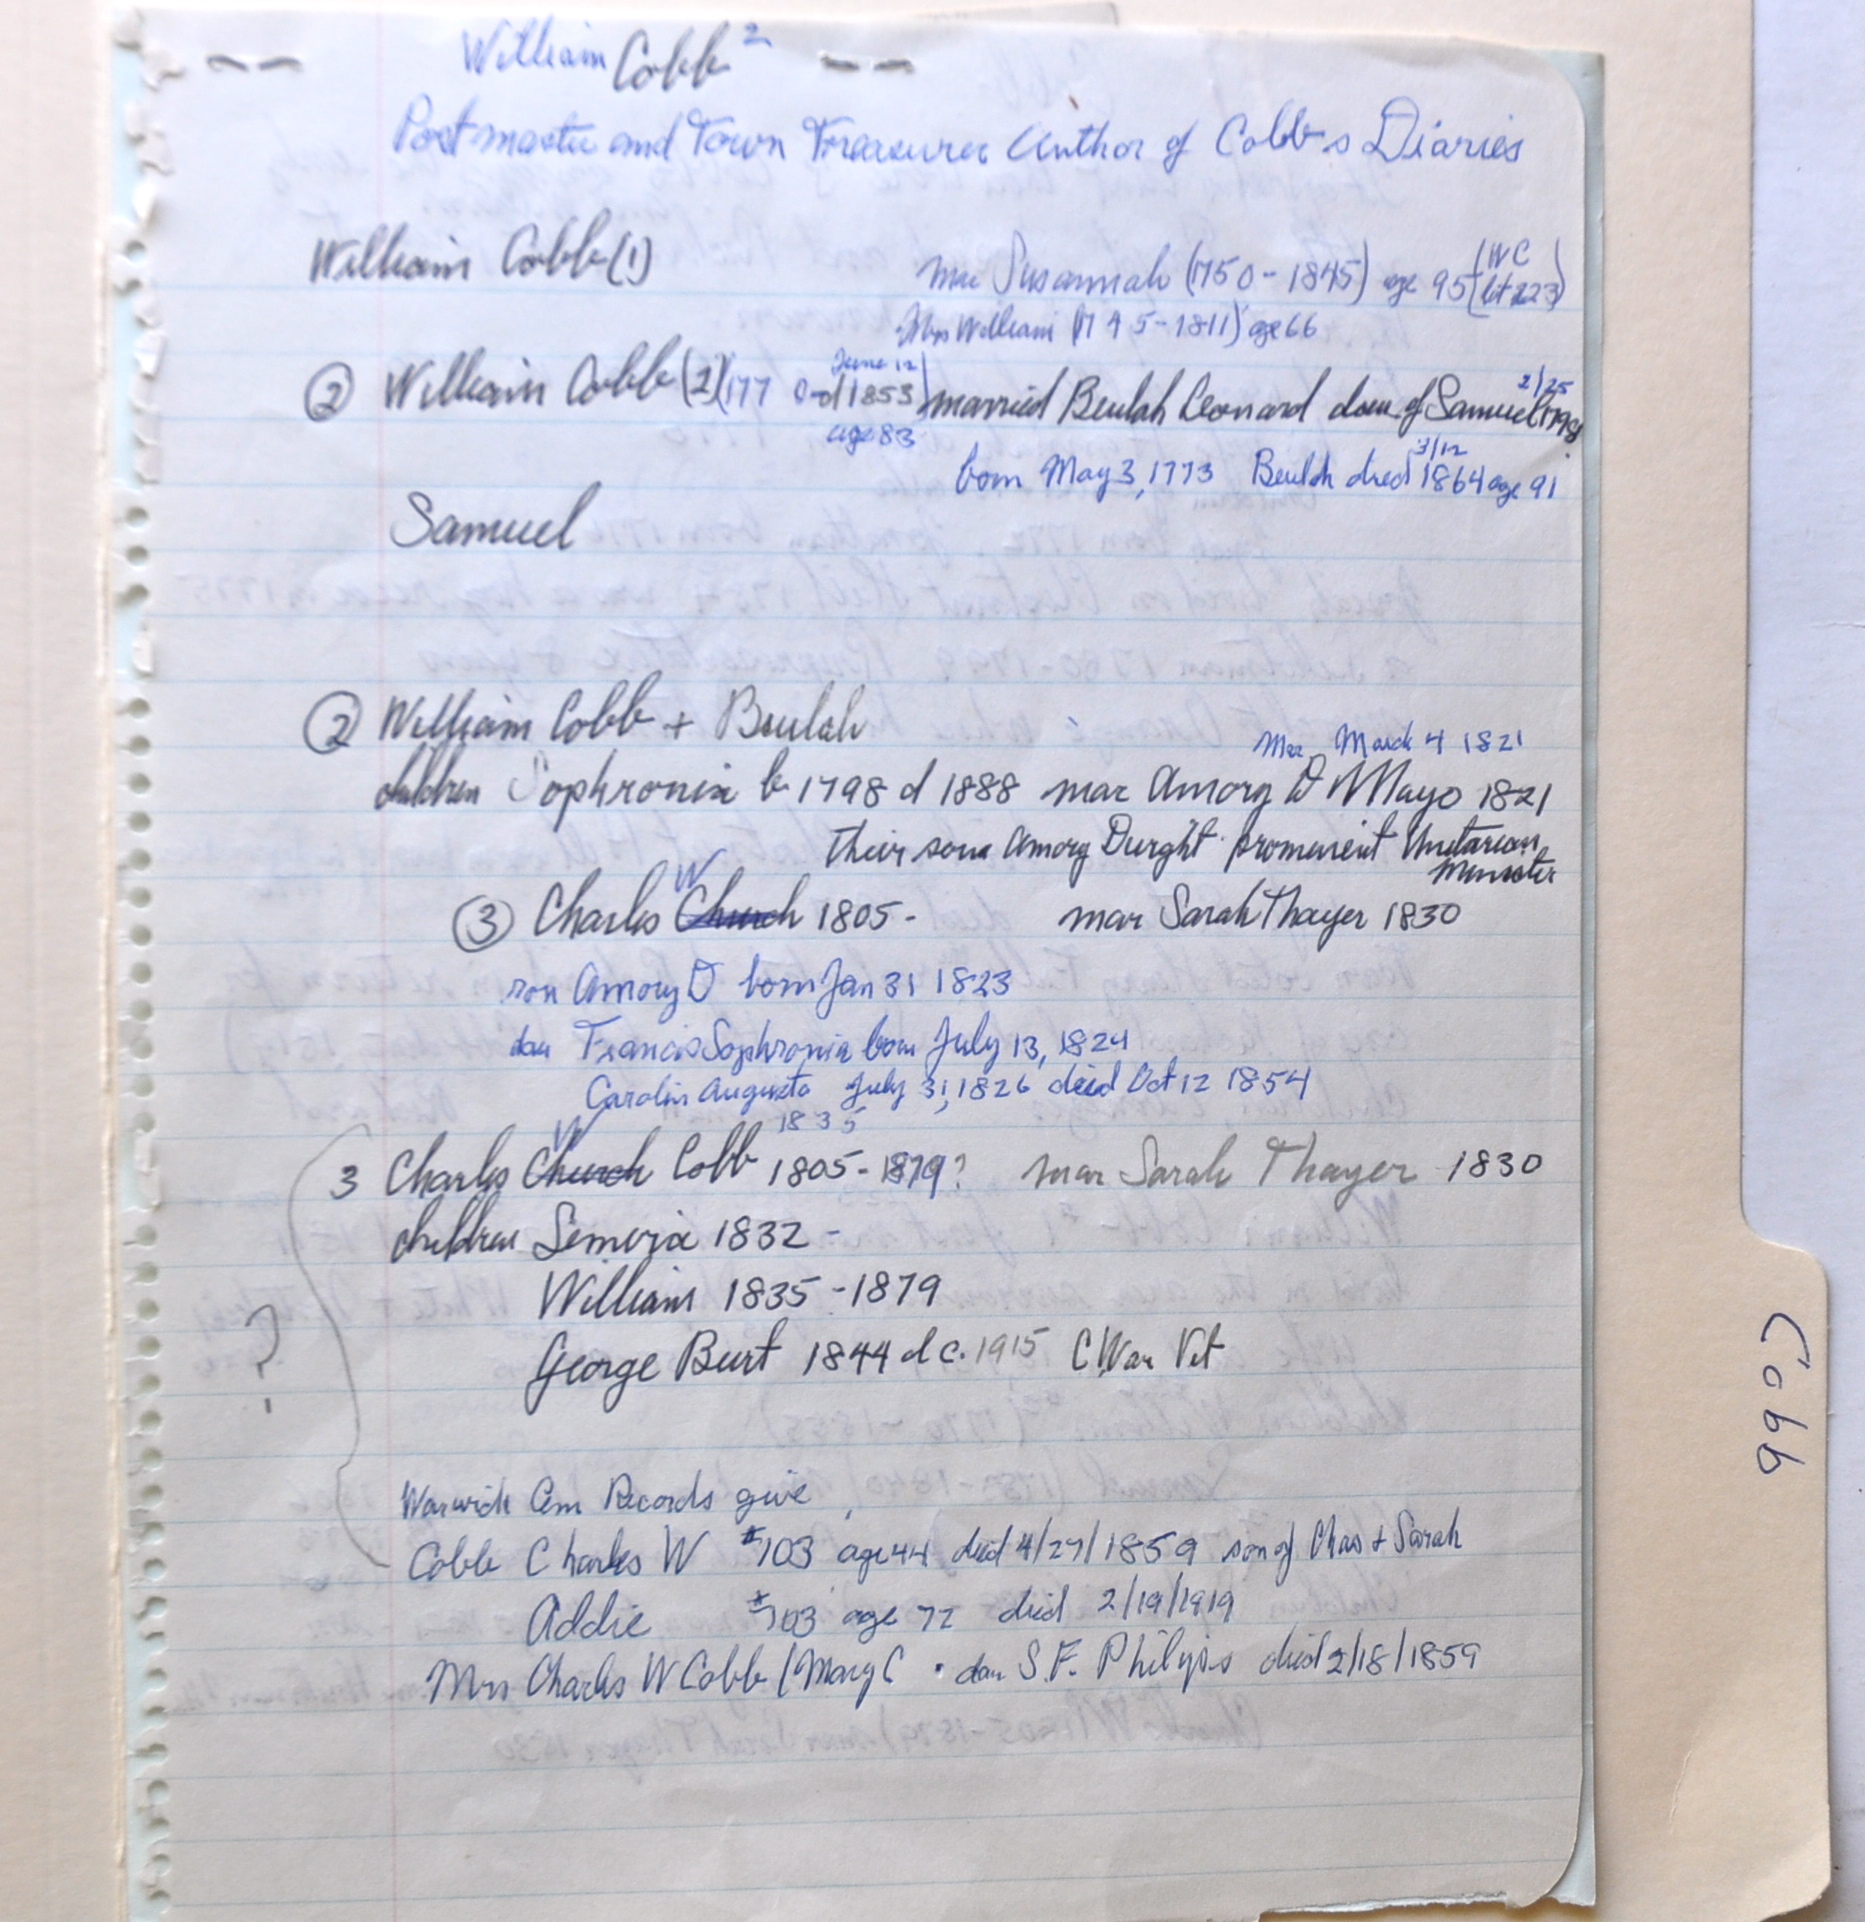 William Cobb 2
Postmaster and Town Treasurer Author of Cobb's Diaries
William Cobb (1) mar Susannah (1750 - 1845) age 95 (WC lot 223)
Mrs William (1745-1811) age 66
② William Cobb (2) (1770-d June 12 1853) age 83 married Beulah Leonard dau. of Samuel 2/25 1798
born May 3, 1773 Beulah died 3/12 1864 age 91
Samuel
② William Cobb + Beulah
mar March 4 1821
children Sophronia b 1798 d 1888 mar Amory D Mayo 1821
Their son Amory Dwight prominent Unitarian Minister
③ Charles W Church 1805- mar Sarah Thayer 1830
son Amory D born Jan 31 1823
dau Francis Sophronia born July 13, 1824
Carolin Augusta July 31, 1826 died Oct 12 1854
1835
3 Charles W Church Cobb 1805-1879? mar Sarah Thayer 1830
children 1832 -
William 1835 - 1879
? George Burt 1844 d c. 1915 C War Vet
Warwick Cem Records give
Cobb Charles W #103 age 44 died 4/27/1859 son of Chas + Sarah
Addie #103 age 72 died 2/19/1919
Mrs Charles W Cobb (Mary C dau S.F. Philips died 2/18/1859
Cobb